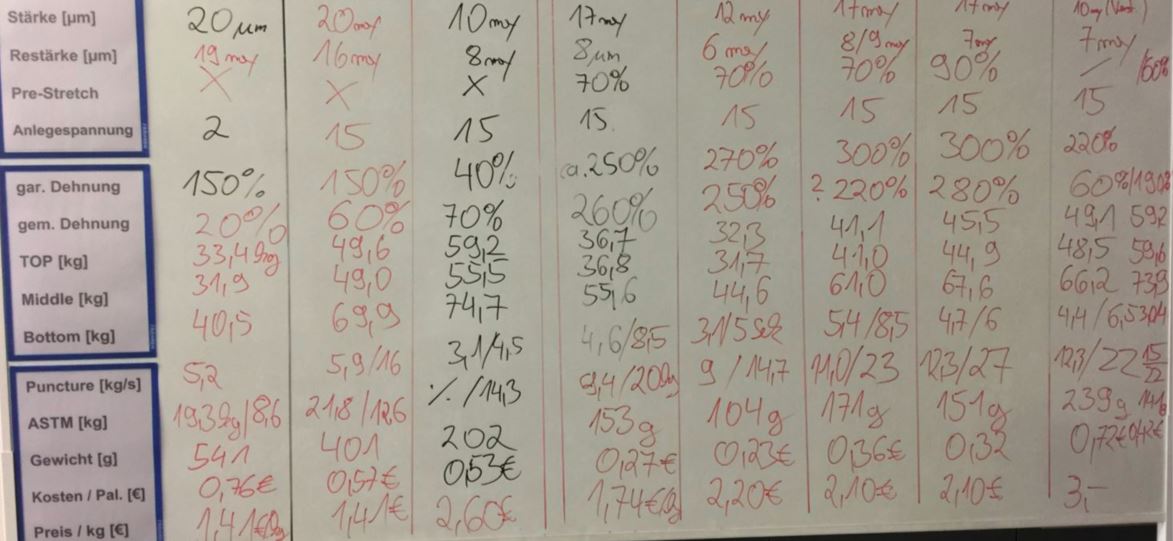 Stärke [µm] 20 µm 20my 10my 17my 12my 17my 17my 10my
Restärke [µm] 19my 16my 8my 8µm 6my 8/9my 7my 7my
Pre-Stretch X X X 70% 70% 70% 90% / 160%
Anlegespannung 2 15 15 15. 15 15 15 15
gar. Dehnung 150% 150% 40% ca.250% 270% 300% 300% 220%
gem. Dehnung 20% 60% 70% 260% 250% ? 220% 280% 60%/190%
TOP [kg] 33,4kg 49,6 59,2 36,7 32,3 41,1 45,5 49,1 59,2
Middle [kg] 31,9 49,0 55,5 36,8 31,7 41,0 44,9 48,5 59,6
Bottom [kg] 40,5 69,9 74,7 55,6 44,6 61,0 67,6 66,2
Puncture [kg/s] 5,2 5,9/16 3,1/4,5 4,6/8,5 3,1/5 5,4/8,5 4,7/6 4,4/6,5
ASTM [kg] 19,3kg/8,6 21,8/12,6 ٪/14,3 9,4/20kg 9/14,7 11,0/23 12,3/27 12,3/22 15/22
Gewicht [g] 541 401 202 153g 104g 171g 151g 239g 141g
Kosten / Pal. [€] 0,76€ 0,57€ 0,53€ 0,27€ 0,23€ 0,36€ 0,32 0,72€ 0,42€
Preis / kg [€] 1,41€/kg 1,41€ 2,60€ 1,74€/kg 2,20€ 2,10€ 2,10€ 3,-